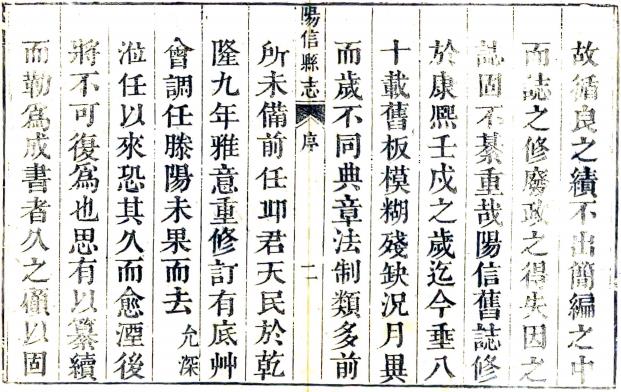 故循良之績不出簡編之中
而誌之修廢政之得失因之
誌固不綦重哉陽信舊誌修
於康熙壬戍之歲迄今垂八
十載舊板模糊殘缺況月異
而歲不同典章法制類多前
陽信縣志 序 二
所未備前任邱君天民於乾
隆九年雅意重修訂有底艸
會調任滕陽未果而去允深
涖任以來恐其久而愈湮後
將不可復為也思有以纂續
而勒為成書者久之僅以固